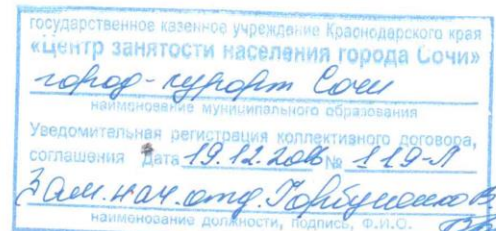 государственное казенное учреждение Краснодарского края
«Центр занятости населения города Сочи»
город-курорт Сочи
наименование муниципального образования
Уведомительная регистрация коллективного договора,
соглашения дата 19.12.2016 № 119-Л
Зам. нач. отд. Горбуненко В
наименование должности, подпись, Ф.И.О.